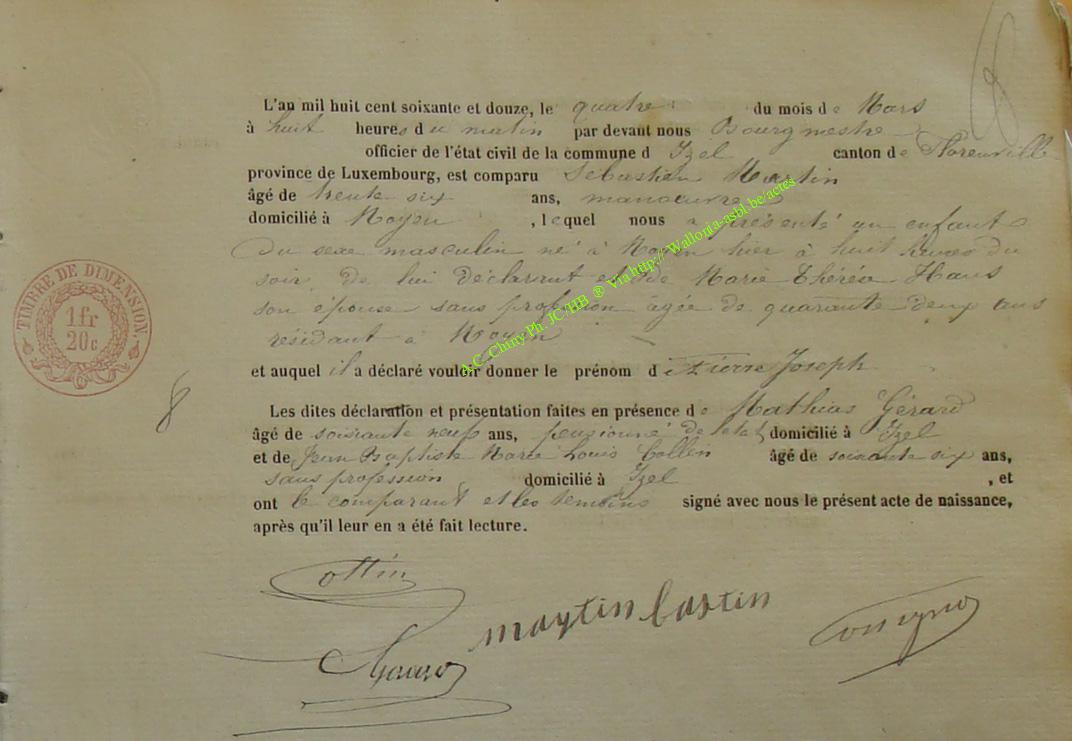 L'an mil huit cent soixante et douze, le quatre du mois de Mars
à huit heures du matin par devant nous Bourgmestre
officier de l'état civil de la commune d Izel canton de Florenville
province de Luxembourg, est comparu Sébastien Martin
âgé de trente six ans, manoeuvre
domicilié à Moyen , lequel nous a présenté un enfant
du sexe masculin né à Moyen hier à huit heures du
soir, de lui déclarant et de Marie Thérèse Haus
son épouse sans profession âgée de quarante deux ans
résidant à Moyen
et auquel il a déclaré vouloir donner le prénom de Pierre Joseph
Les dites déclaration et présentation faites en présence de Mathias Gérard
âgé de soixante neuf ans, pensionné de l'etat, domicilié à Izel
et de Jean Baptiste Marie Louis Collin âgé de soixante six ans,
sans profession domicilié à Izel , et
ont le comparant et les témoins signé avec nous le présent acte de naissance,
après qu'il leur en a été fait lecture.
TIMBRE DE DIMENSION.
1fr
20c
8
martin bastin
A.C. Chiny Ph. JC/HB ® Via http://Wallonia-asbl.be/actes